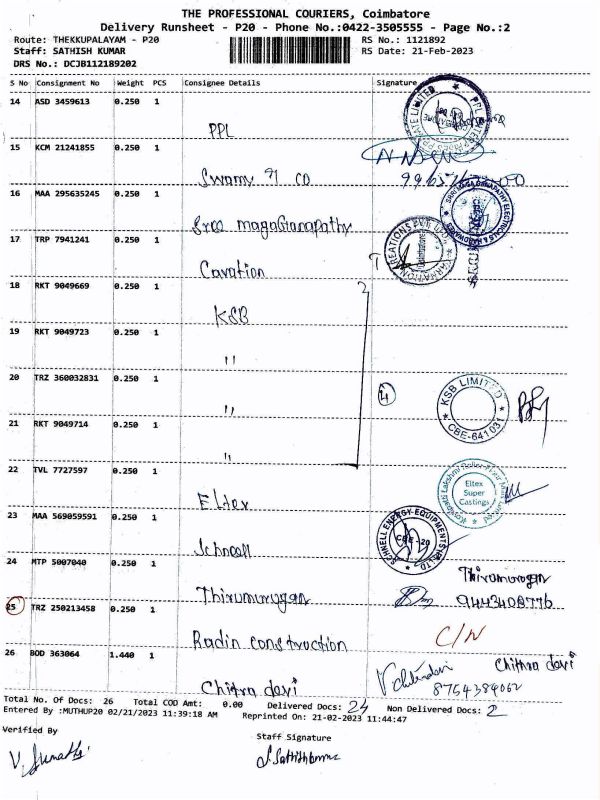 THE PROFESSIONAL COURIERS, Coimbatore
Delivery Runsheet - P20 - Phone No.:0422-3505555 - Page No.:2
Route: THEKKUPALAYAM - P20
RS No.: 1121892
Staff: SATHISH KUMAR
RS Date: 21-Feb-2023
DRS No.: DCJB112189202
S No Consignment No Weight PCS Consignee Details Signature
14 ASD 3459613 0.250 1
PPL
15 KCM 21241855 0.250 1
Swamy & co
16 MAA 295635245 0.250 1
Sree magaGanapathy
17 TRP 7941241 0.250 1
Cavation
18 RKT 9049669 0.250 1
KSB
19 RKT 9049723 0.250 1
"
20 TRZ 360032831 0.250 1
"
4
KSB LIMITED
CBE-641031
21 RKT 9049714 0.250 1
"
22 TVL 7727597 0.250 1
Eltex
Eltex
Super
Castings
23 MAA 569059591 0.250 1
Schnell
SCHNELL ENERGY EQUIPMENTS (P) LTD
CBE - 20
24 MTP 5007040 0.250 1
Thirumurugan
Thirumurugan
9443408776
25 TRZ 250213458 0.250 1
Radin construction
C/N
26 BOD 363064 1.440 1
Chitra devi
Chithra devi
8754384062
Total No. Of Docs: 26 Total COD Amt: 0.00 Delivered Docs: 24 Non Delivered Docs: 2
Entered By :MUTHUP20 02/21/2023 11:39:18 AM Reprinted On: 21-02-2023 11:44:47
Verified By
Staff Signature